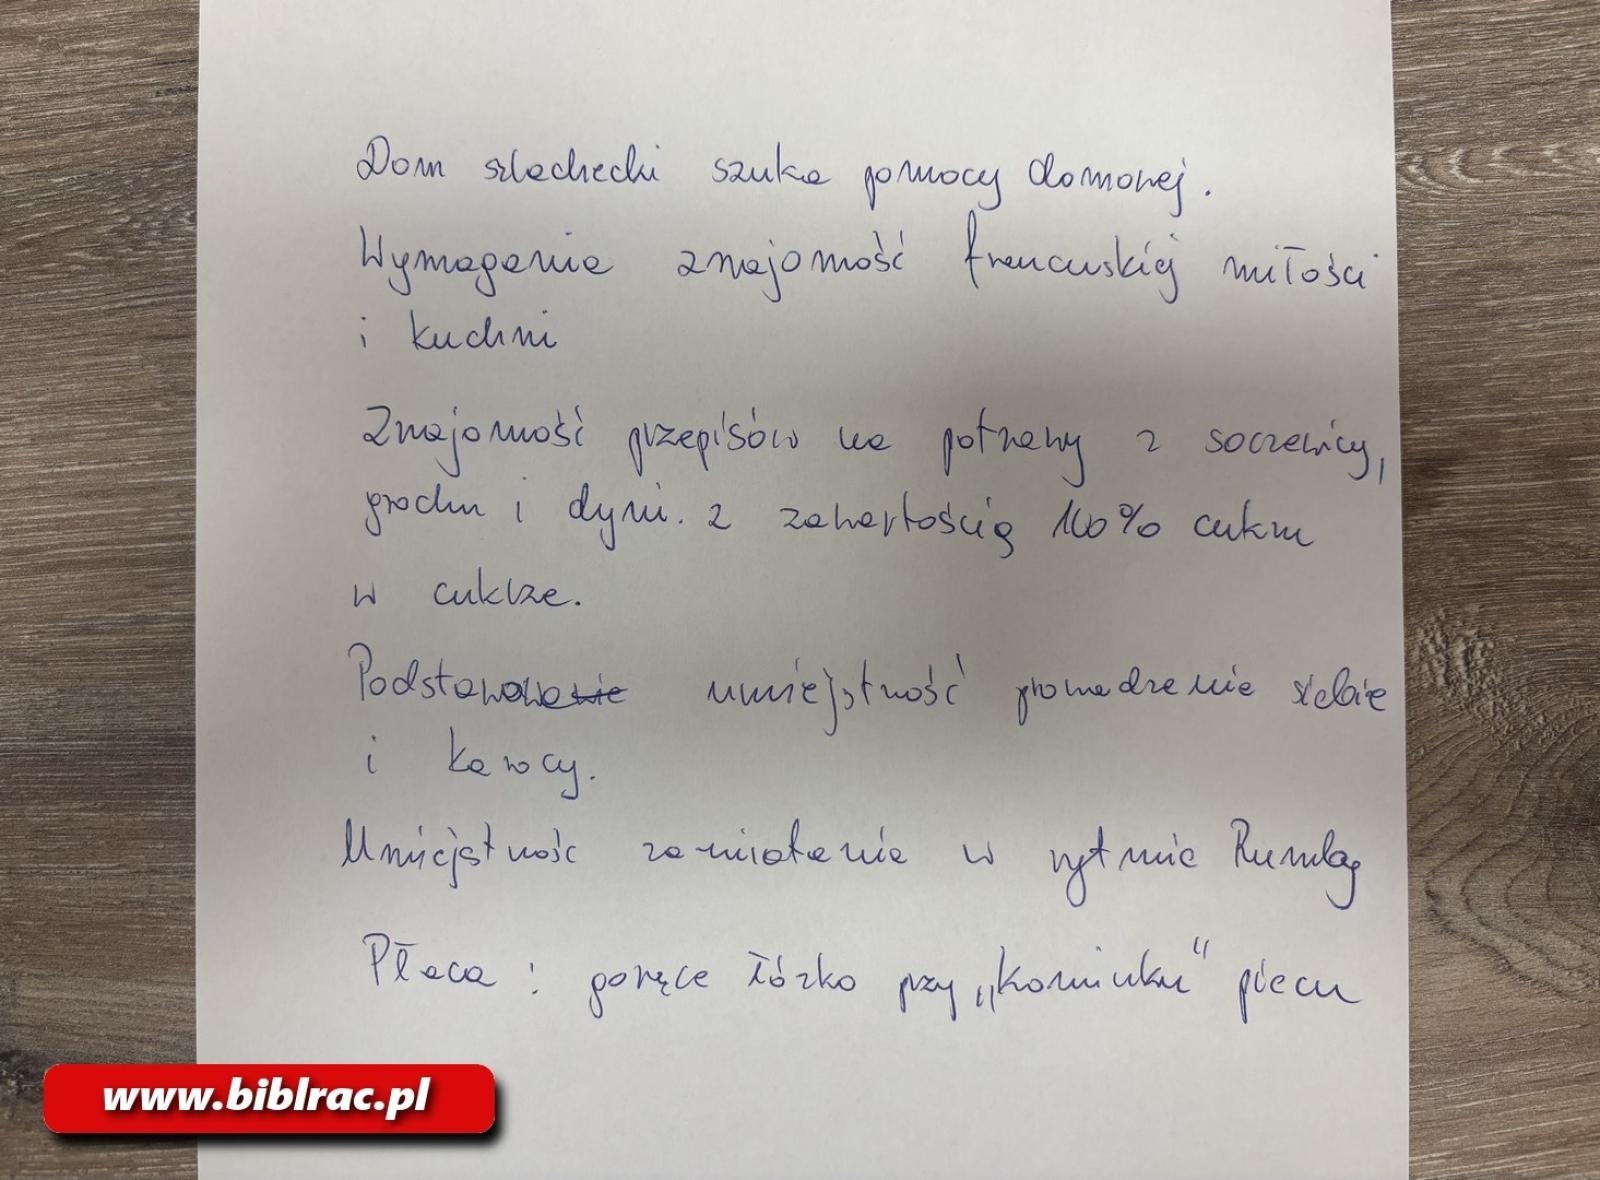 Dom szlachecki szuka pomocy domowej.
Wymagania znajomość francuskiej miłości
i kuchni
Znajomość przepisów na potrawy z soczewicy,
grochu i dyni. z zawartością 100% cukru
w cukrze.
Podstawowa umiejstność prowadzenie siebie
i karocy.
Umiejstnośc zamiatania w rytmie Rumbą
Płaca : gorące łózko przy „kominku" piecu
www.biblrac.pl